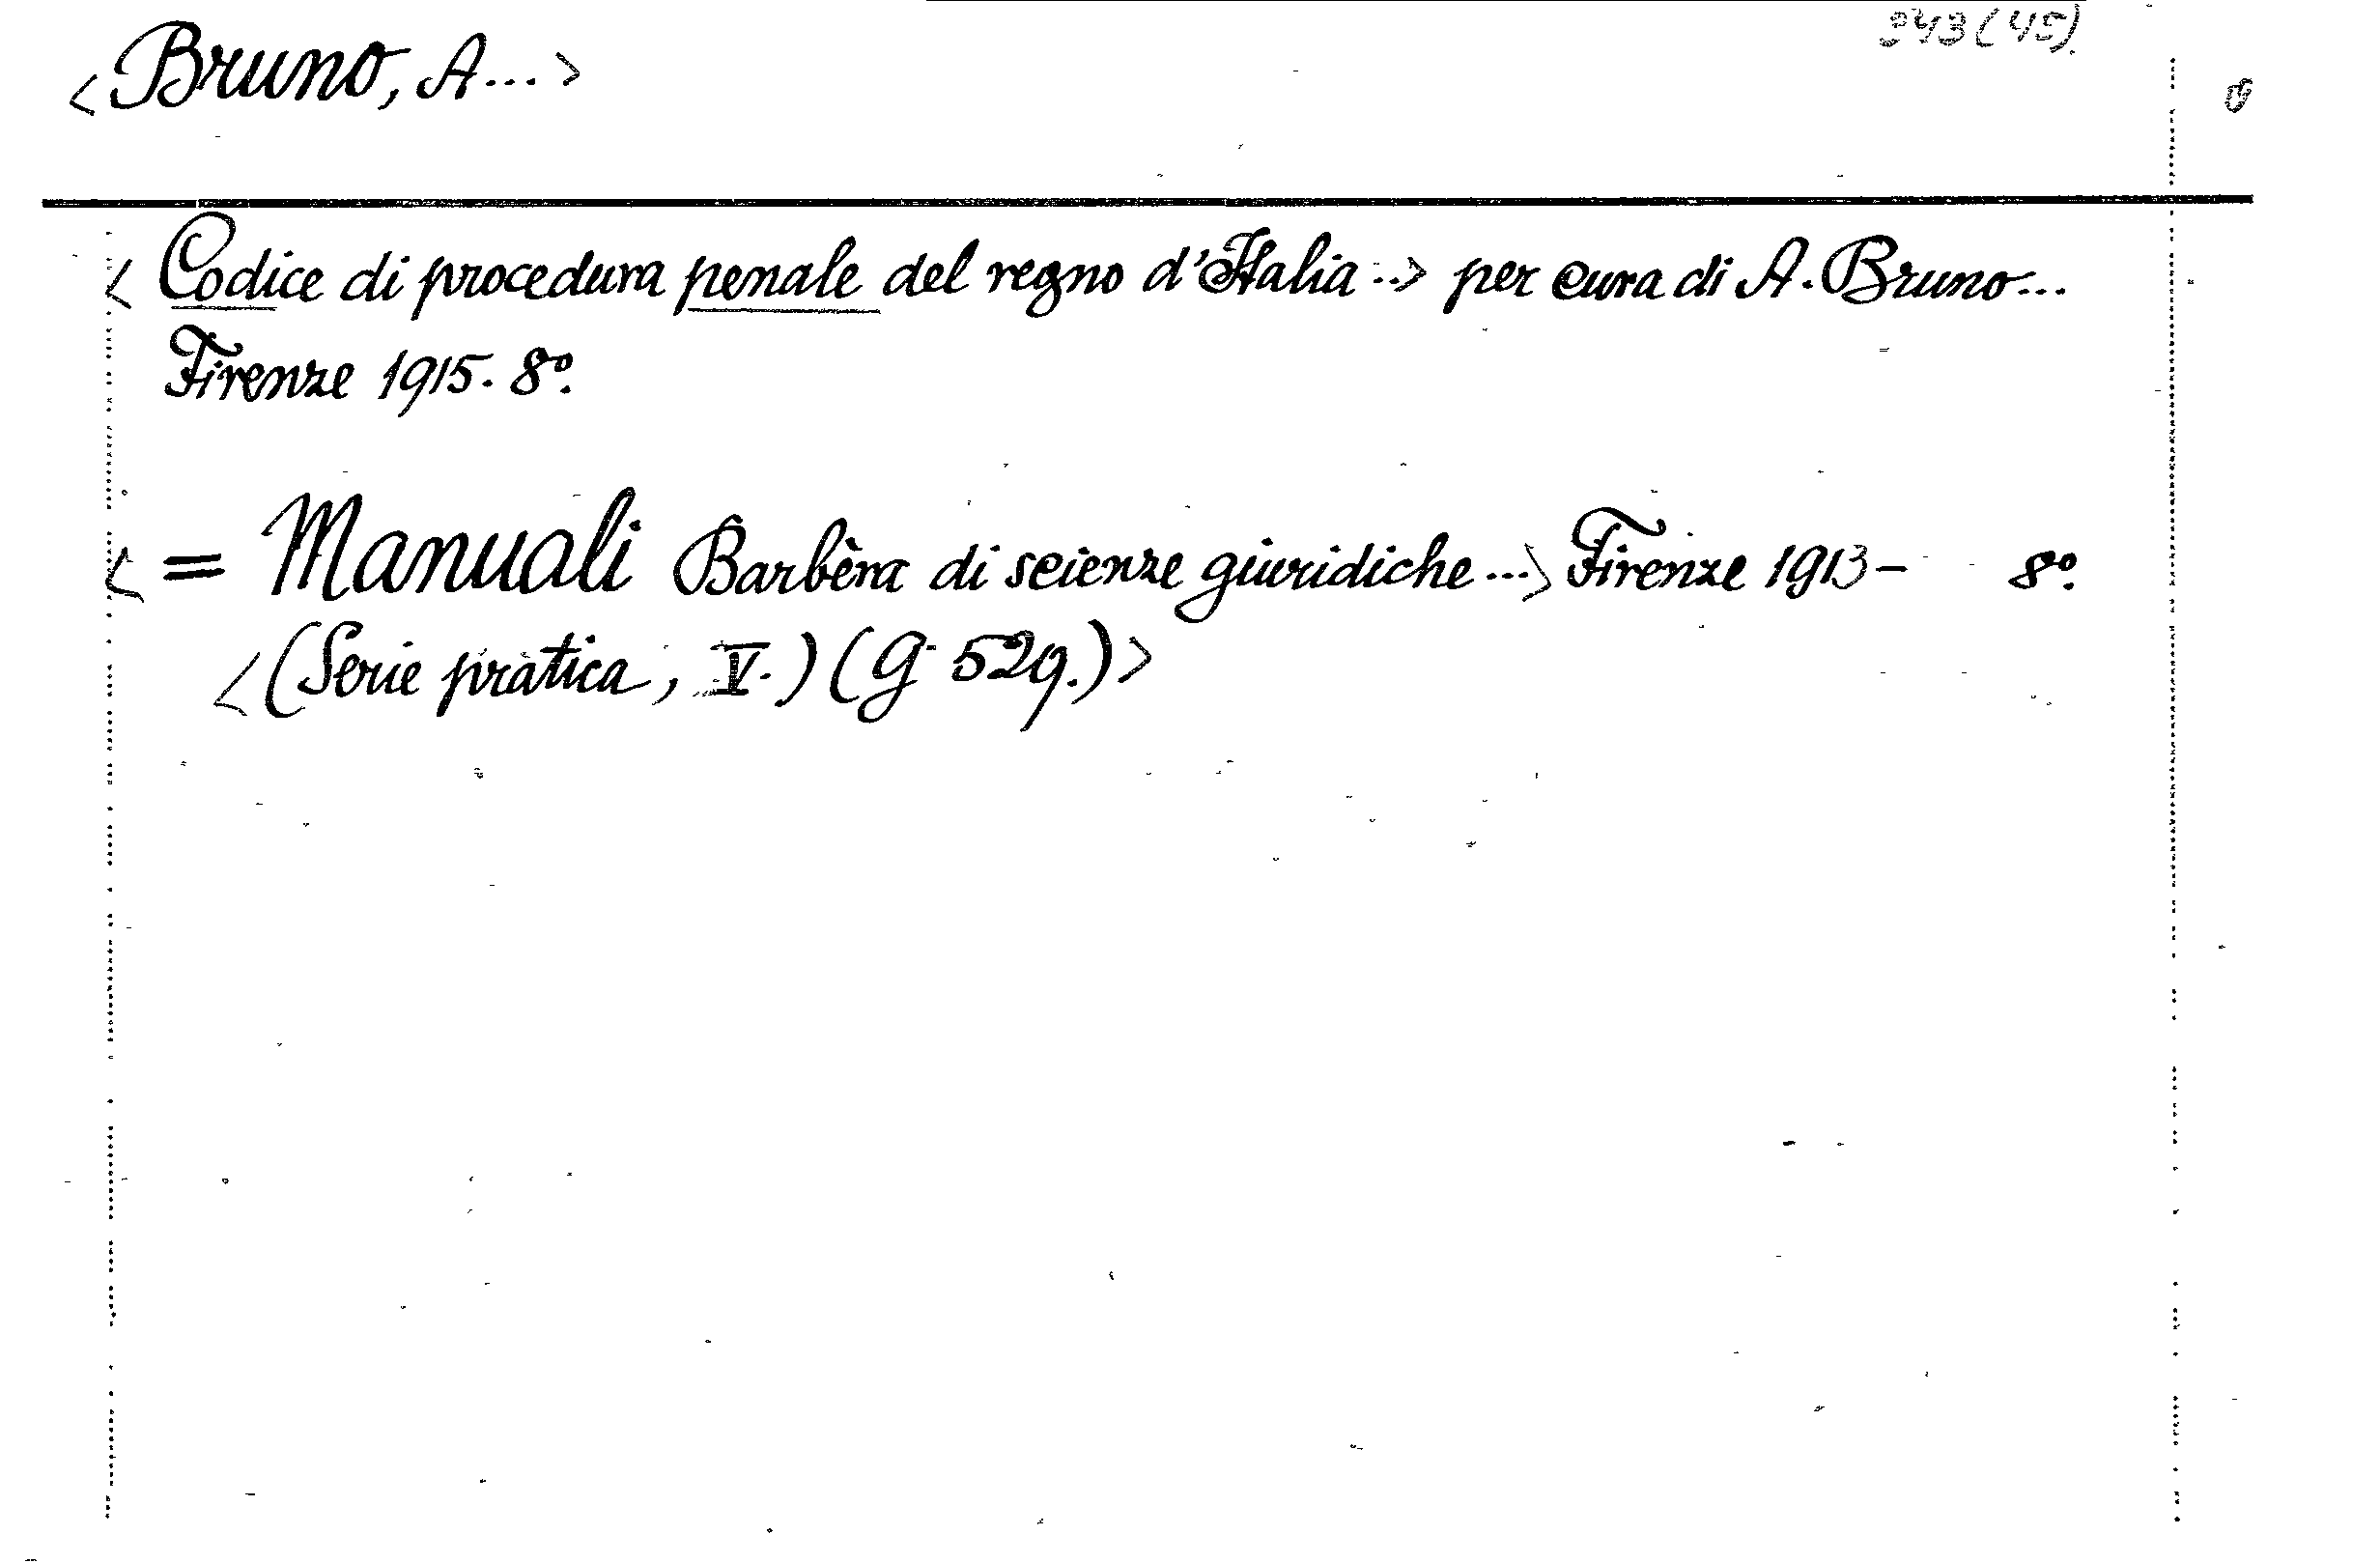 343(45)
<Bruno, A...>
<Codice di procedura penale del regno d'Italia...> per cura di A. Bruno...
Firenze 1915. 8º.
<= Manuali Barbèra di scienze giuridiche...> Firenze 1913- 8º.
<(Serie pratica, V.) (G 529.)>